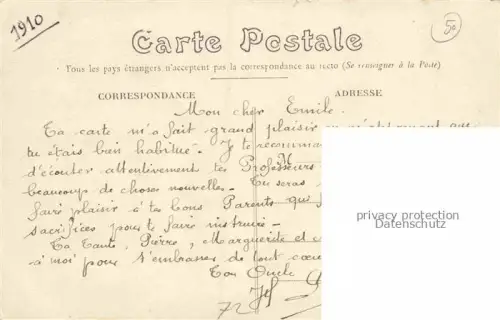 1910
50
Carte Postale
Tous les pays étrangers n'acceptent pas la correspondance au recto (Se renseigner à la Poste)
CORRESPONDANCE ADRESSE
Mon cher Emile.
Ta carte m'a fait grand plaisir en m'apprenant que
tu étais bien habitué - Je te recomma
M
d'écouter attentivement tes Professeurs
beaucoup de choses nouvelles - Tu seras
faire plaisir à tes bons Parents qui
sacrifices pour te faire instruire -
Ta Tante, Pierre, Marguerite et
à moi pour t'embrasser de tout cœur
Ton Oncle
72
privacy protection
Datenschutz